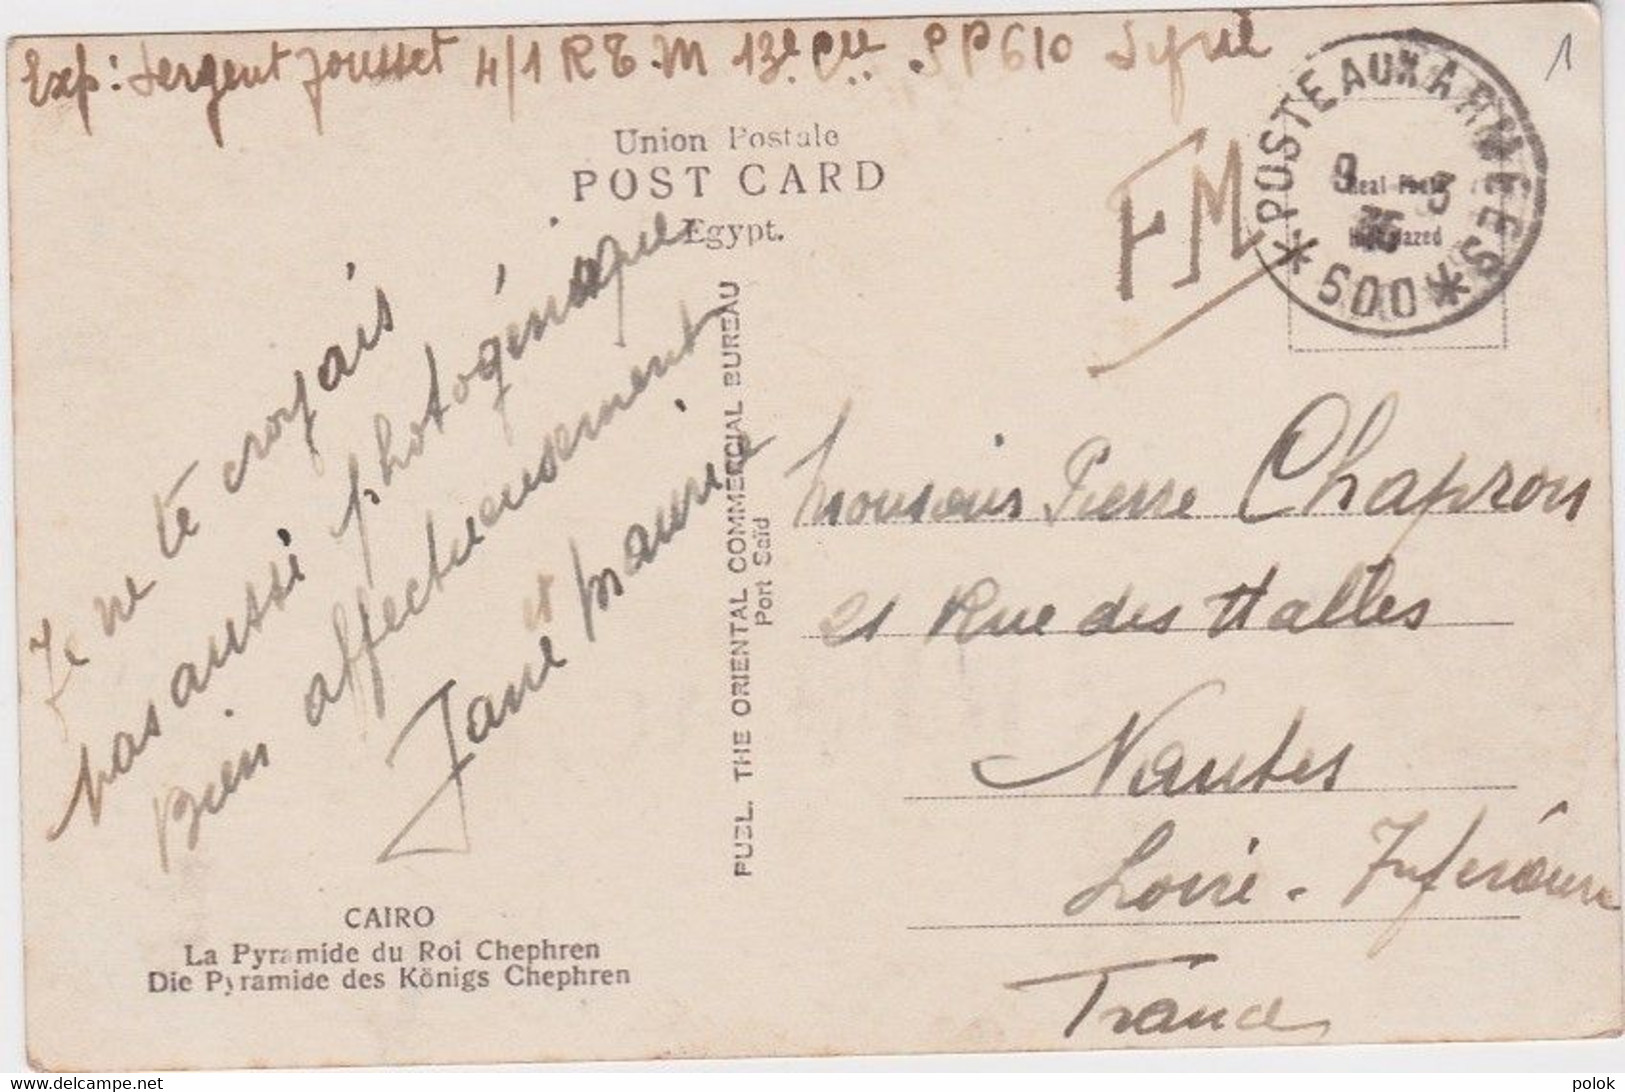 Exp: Sergent Jousset 4/1 R.T.M 13e Cie S P 610 Syrie
1
Union Postale
POST CARD
Egypt.
FM
* POSTE AUX ARMÉES * 600
9 - 3
36
Real Photo
Glazed
Je ne te croyais
pas aussi photogénique
Bien affectueusement
Jane et Maurice
PUBL. THE ORIENTAL COMMERCIAL BUREAU
Port Saïd
Monsieur Pierre Chapron
21 Rue des Halles
Nantes
Loire-Inférieure
France
CAIRO
La Pyramide du Roi Chephren
Die Pyramide des Königs Chephren
https://www.delcampe.net
polok